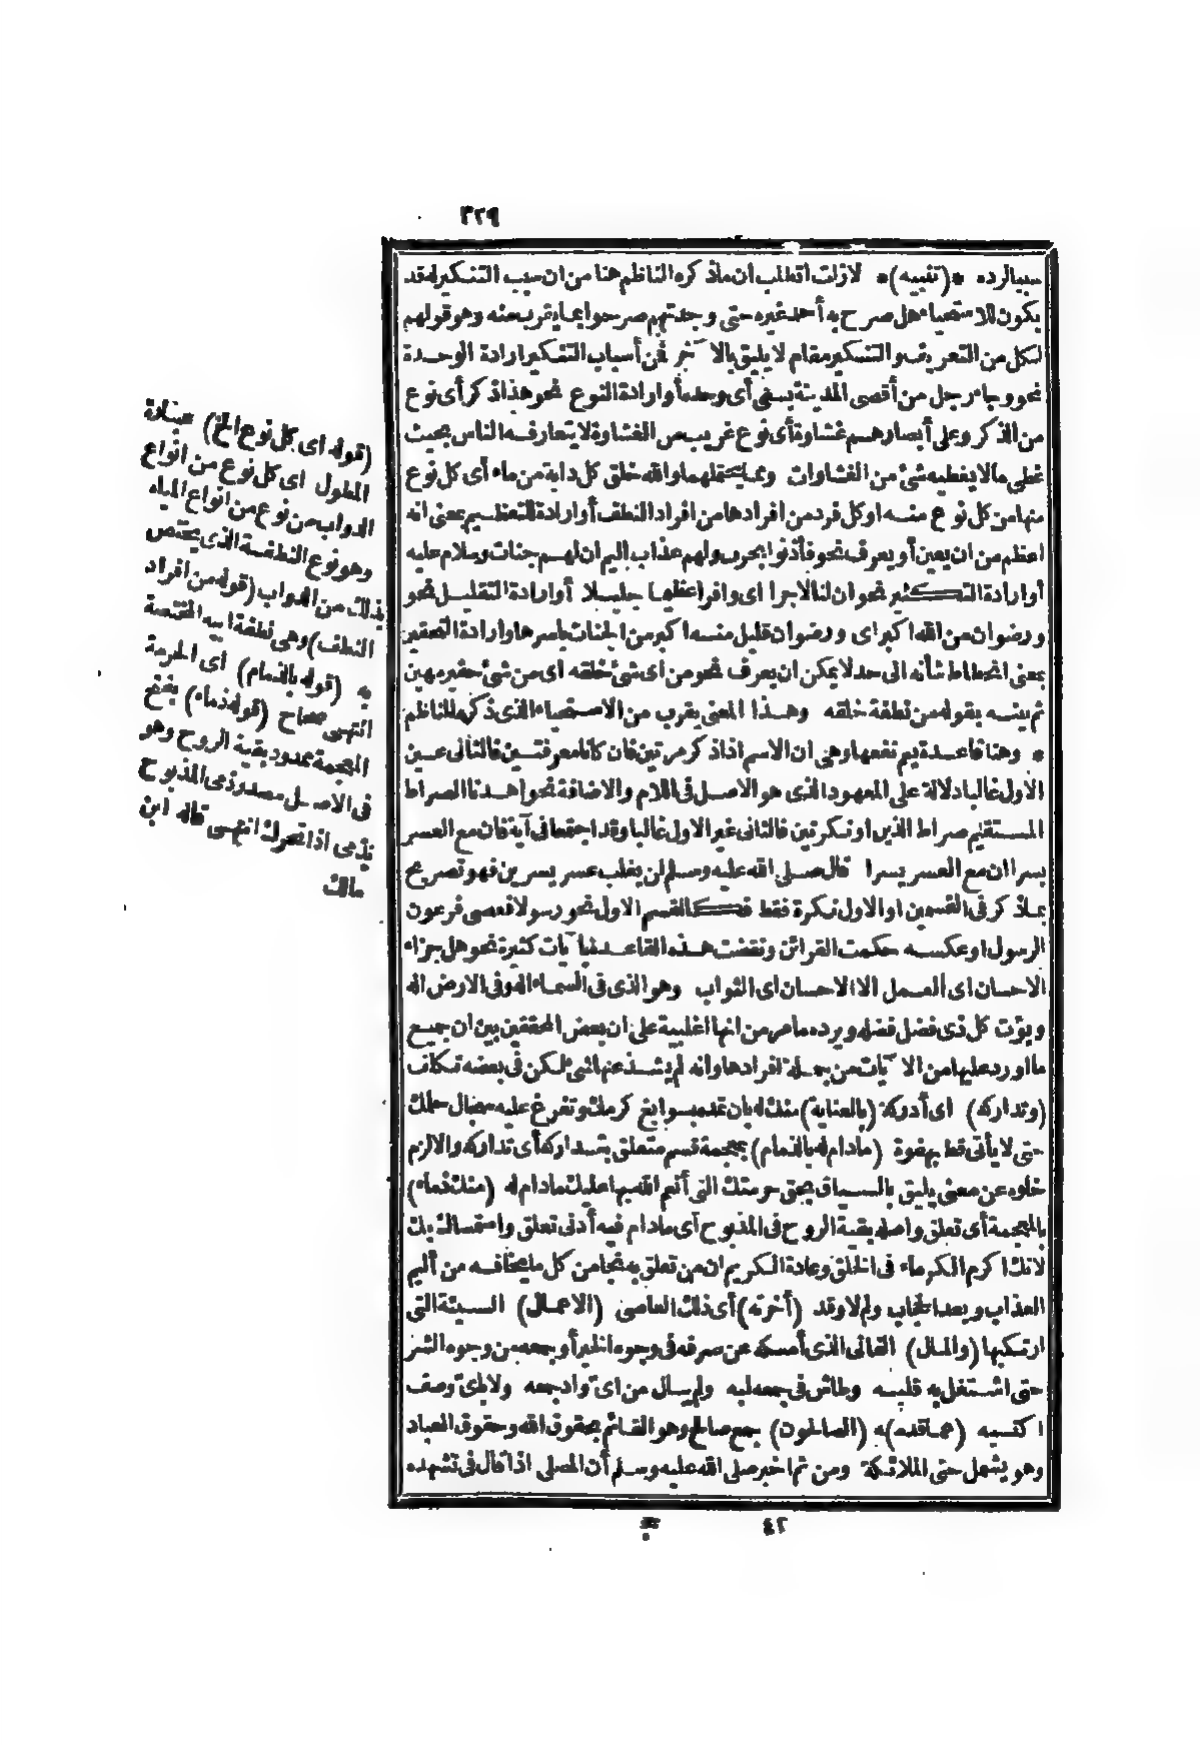 ٣٢٩
سببا لرده *(تنبيه)* لا زلت اتطلب ان ماذكره الناظم هنا من ان سبب التنكير له قد
يكون الاستحياء هل صرح به أحد غيره حتى وجدتهم صرحوا بما يقرب منه وهو قولهم
لكل من التعريف والتنكير مقام لا يليق بالآخر فمن أسباب التنكير ارادة الوحدة
نحو وجاء رجل من أقصى المدينة يسعى أى وحده أو ارادة النوع نحو هذا ذكر أى نوع
من الذكر وعلى أبصارهم غشاوة أى نوع غريب من الغشاوة لا يتعارفه الناس بحيث
غطى ما لا يغطيه شئ من الغشاوات ومما يحتملهما والله خلق كل دابة من ماء أى كل نوع
منها من كل نوع منه او كل فرد من افرادها من افراد النطف أو ارادة التعظيم بمعنى انه
اعظم من ان يعين أو يعرف نحو فأذنوا بحرب ولهم عذاب اليم ان لهم جنات وسلام عليه
أو ارادة التكثير نحو ان لنا لاجرا اى وافرا عظيما جليلا أو ارادة التقليل نحو
ورضوان من الله اكبر اى ورضوان قليل منه اكبر من الجنات باسرها وارادة التحقير
بمعنى انحطاط شأنه الى حد لا يمكن ان يعرف نحو من اى شئ خلقه اى من شئ حقير مهين
ثم بينه بقوله من نطفة خلقه وهذا المعنى يقرب من الاستحياء الذى ذكره الناظم
* وهنا قاعدة يعم نفعها وهى ان الاسم اذا ذكر مرتين فان كانا معرفتين فالثانى عين
الاول غالبا دلالة على المعهود الذى هو الاصل فى اللام والاضافة نحو اهدنا الصراط
المستقيم صراط الذين او نكرتين فالثانى غير الاول غالبا وقد اجتمعا فى آية فان مع العسر
يسرا ان مع العسر يسرا قال صلى الله عليه وسلم لن يغلب عسر يسرين فهو تصريح
بما ذكر فى القسمين او الاول نكرة فقط فكالقسم الاول نحو رسولا فعصى فرعون
الرسول او عكسه حكمت القرائن ونقضت هذه القاعدة بآيات كثيرة نحو هل جزاء
الاحسان اى العمل الا الاحسان اى الثواب وهو الذى فى السماء اله وفى الارض اله
ويؤت كل ذى فضل فضله ويرده ما مر من انها اغلبية على ان بعض المحققين بين ان جميع
ما اورد عليها من الآيات من جملة افرادها وانه لم يشذ عنها شئ لكن فى بعضه تكلف
(وتداركه) اى أدركه (بالعناية) منك له بان تمده بسوابغ كرمك وتفرغ عليه سجال حلمك
حتى لا يأتى قط بهفوة (مادام له بالذمام) بمعجمة قسم متعلق بتداركه أى تداركه والا لزم
خلوه عن معنى يليق بالسياق بحق حرمتك التى أنعم الله بها عليك مادام له (منك ذماء)
بالمعجمة أى تعلق واصله بقية الروح فى المذبوح أى مادام فيه أدنى تعلق واستمساك بك
لانك اكرم الكرماء فى الخلق وعادة الكريم ان من تعلق به نجا من كل ما يخافه من أليم
العذاب وبعد الحجاب ولم لا وقد (أخرته) أى ذلك العاصى (الاعمال) السيئة التى
ارتكبها (والمال) الفانى الذى أمسكه عن صرفه فى وجوه الخير أو جمعه من وجوه الشر
حتى اشتغل به قلبه وطاش فى جمعه لبه ولم يسأل من اى واد جمعه ولا باى وصف
اكتسبه (عما قدم) ه (الصالحون) جمع صالح وهو القائم بحقوق الله وحقوق العباد
وهو يشمل حتى الملائكة ومن ثم اخبر صلى الله عليه وسلم أن المصلى اذا قال فى تشهده
(قوله اى كل نوع الخ) عبارة
المطول اى كل نوع من انواع
الدواب من نوع من انواع المياه
وهو نوع النطفة الذى يختص
بذلك من الدواب (قوله من افراد
النطف) وهى نطفة ابيه المختصة
به (قوله بالذمام) اى الحرمة
انتهى مصباح (قوله ذماء) بفتح
المعجمة ممدود بقية الروح وهو
فى الاصل مصدر ذمى المذبوح
يذمى اذا تحرك انتهى قاله ابن
مالك
٤٢